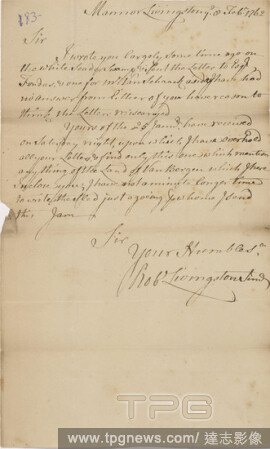 183-
Mannor Livingston 8 Feb 1762
Sir
I wrote you largely some time ago on
the white Leaders & sent the Letter to
& one for Mr & have had
no answer from Either of you have reason to
think the Letter miscarryed
Yours of the 25 Jan I have received
on Saturday night, upon which I have
all your Letters & find only this one which mention
anything of the Land of Van Bergen which I have
Inclose you, I have not a minute longer time
to write the Sled just agoing by whome I send
this I am
Sir
Your Humble Sr
Robt Livingston Junr
TPG
www.tpgnews.com / 達志影像